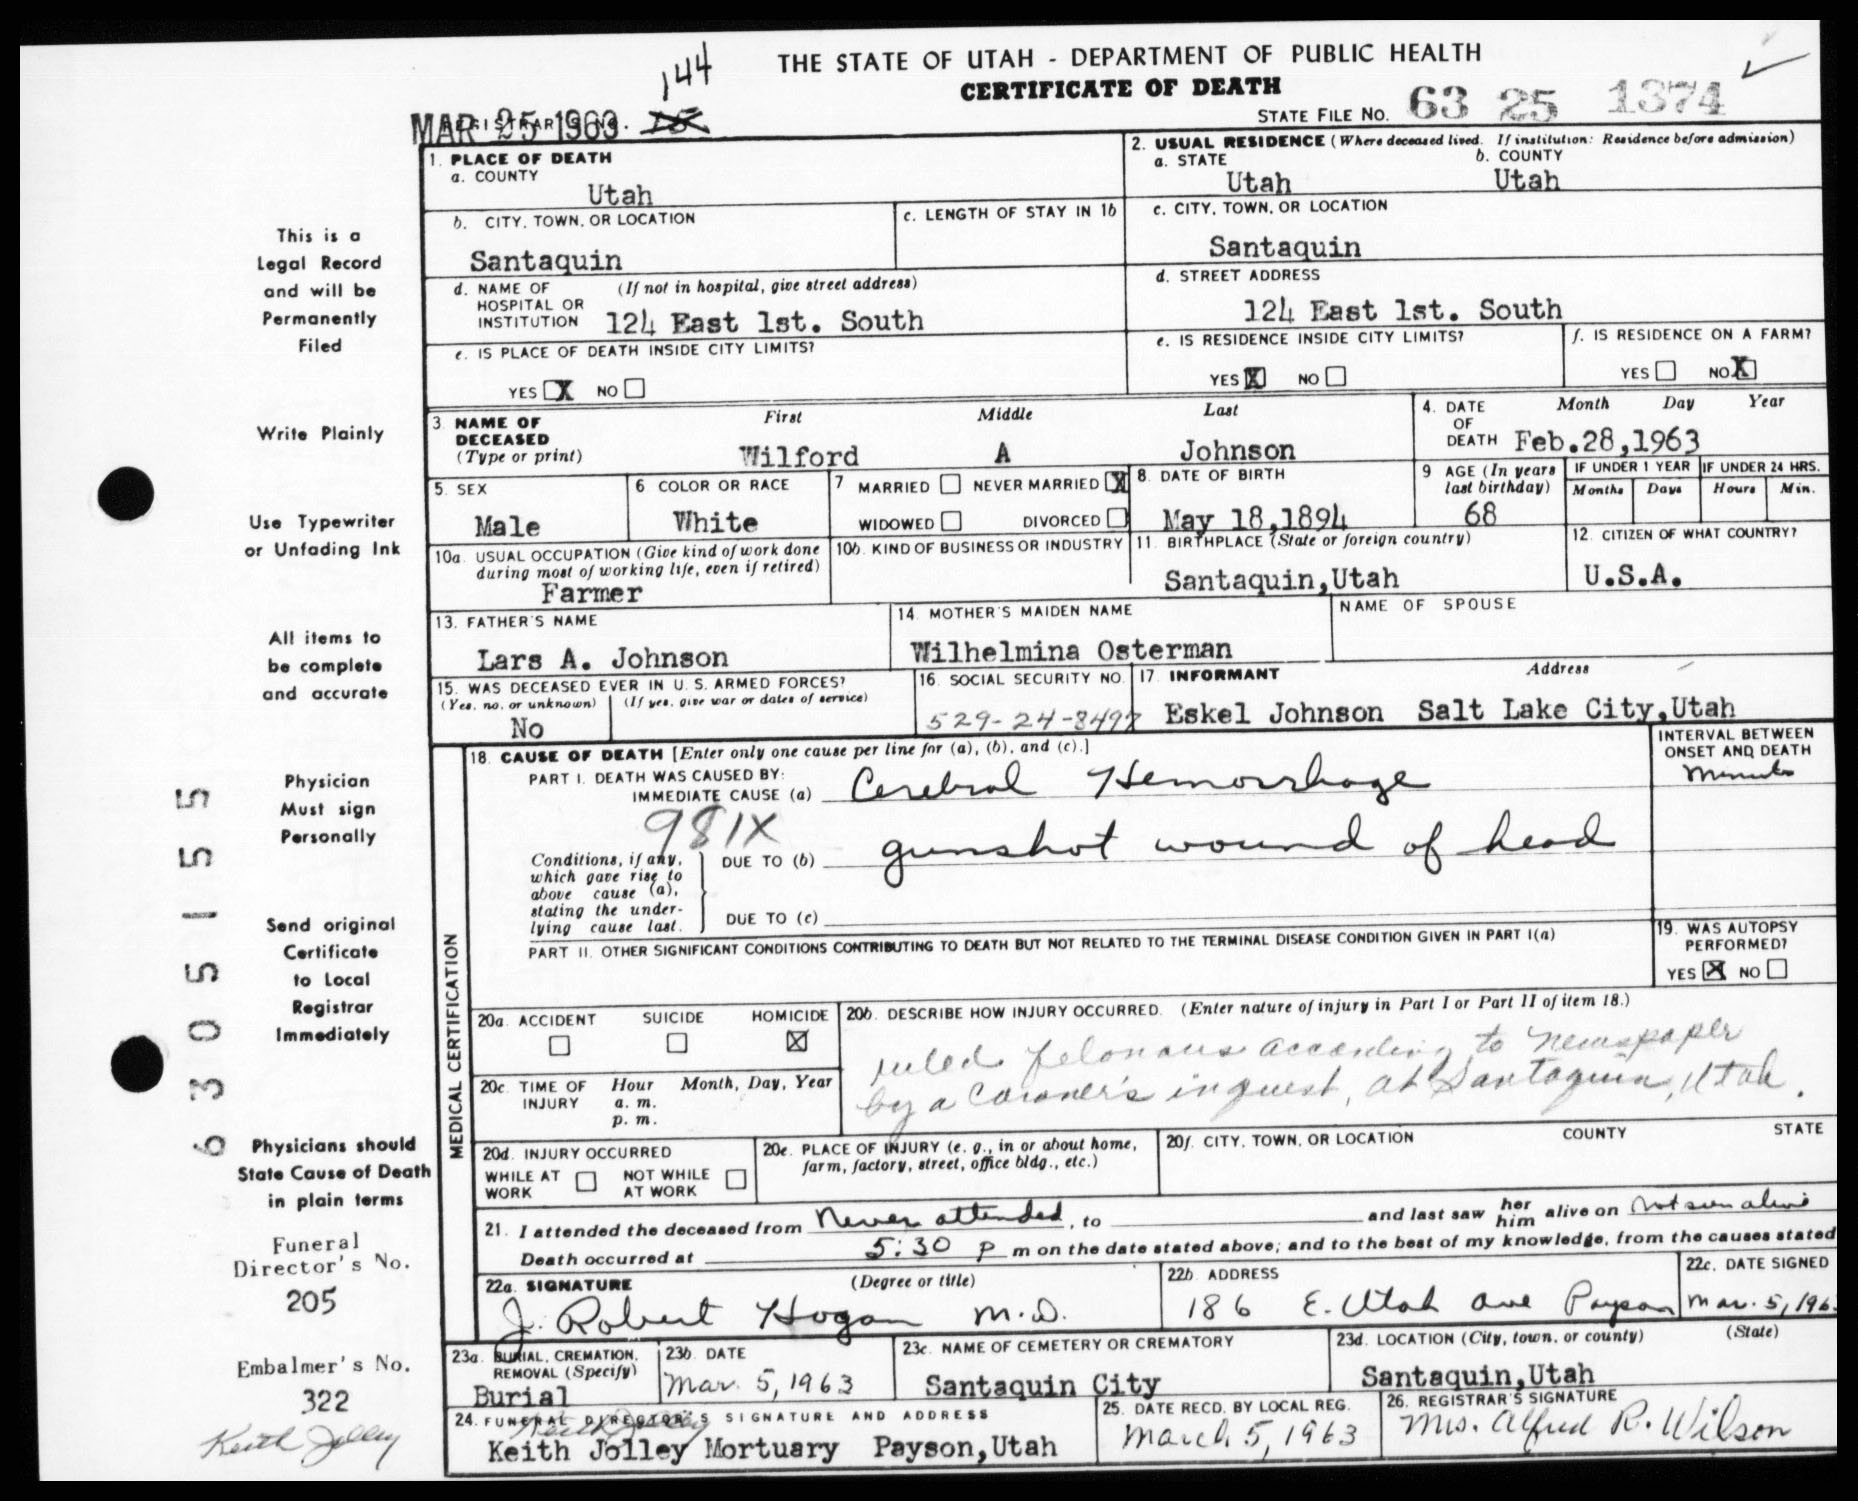 THE STATE OF UTAH - DEPARTMENT OF PUBLIC HEALTH
CERTIFICATE OF DEATH
144
MAR 25 1963
REGISTRAR'S NO. 15
STATE FILE NO. 63 25 1374
This is a
Legal Record
and will be
Permanently
Filed
Write Plainly
Use Typewriter
or Unfading Ink
All items to
be complete
and accurate
Physician
Must sign
Personally
Send original
Certificate
to Local
Registrar
Immediately
Physicians should
State Cause of Death
in plain terms
Funeral
Director's No.
205
Embalmer's No.
322
Keith Jolley
6305155
1. PLACE OF DEATH
a. COUNTY
Utah
2. USUAL RESIDENCE (Where deceased lived. If institution: Residence before admission)
a. STATE b. COUNTY
Utah Utah
b. CITY, TOWN, OR LOCATION
Santaquin
c. LENGTH OF STAY IN 1b
c. CITY, TOWN, OR LOCATION
Santaquin
d. NAME OF (If not in hospital, give street address)
HOSPITAL OR
INSTITUTION 124 East 1st. South
d. STREET ADDRESS
124 East 1st. South
e. IS PLACE OF DEATH INSIDE CITY LIMITS?
YES X NO
e. IS RESIDENCE INSIDE CITY LIMITS?
YES X NO
f. IS RESIDENCE ON A FARM?
YES NO X
3. NAME OF DECEASED (Type or print)
First Middle Last
Wilford A Johnson
4. DATE OF DEATH Month Day Year
Feb.28,1963
5. SEX
Male
6 COLOR OR RACE
White
7 MARRIED NEVER MARRIED X
WIDOWED DIVORCED
8. DATE OF BIRTH
May 18,1894
9 AGE (In years last birthday)
68
IF UNDER 1 YEAR IF UNDER 24 HRS.
Months Days Hours Min.
10a. USUAL OCCUPATION (Give kind of work done
during most of working life, even if retired)
Farmer
10b. KIND OF BUSINESS OR INDUSTRY
11. BIRTHPLACE (State or foreign country)
Santaquin,Utah
12. CITIZEN OF WHAT COUNTRY?
U.S.A.
13. FATHER'S NAME
Lars A. Johnson
14. MOTHER'S MAIDEN NAME
Wilhelmina Osterman
NAME OF SPOUSE
15. WAS DECEASED EVER IN U. S. ARMED FORCES?
(Yes, no, or unknown) (If yes, give war or dates of service)
No
16. SOCIAL SECURITY NO.
529-24-8497
17. INFORMANT Address
Eskel Johnson Salt Lake City,Utah
MEDICAL CERTIFICATION
18. CAUSE OF DEATH [Enter only one cause per line for (a), (b), and (c).]
PART I. DEATH WAS CAUSED BY:
IMMEDIATE CAUSE (a) Cerebral Hemorrhage
981X
Conditions, if any,
which gave rise to
above cause (a),
stating the under-
lying cause last.
DUE TO (b) gunshot wound of head
DUE TO (c)
INTERVAL BETWEEN
ONSET AND DEATH
Minutes
PART II. OTHER SIGNIFICANT CONDITIONS CONTRIBUTING TO DEATH BUT NOT RELATED TO THE TERMINAL DISEASE CONDITION GIVEN IN PART I(a)
19. WAS AUTOPSY
PERFORMED?
YES X NO
20a. ACCIDENT SUICIDE HOMICIDE X
20b. DESCRIBE HOW INJURY OCCURRED. (Enter nature of injury in Part I or Part II of item 18.)
ruled felonous according to newspaper
by a Coroner's inquest, at Santaquin, Utah.
20c. TIME OF INJURY Hour Month, Day, Year
a. m.
p. m.
20d. INJURY OCCURRED
WHILE AT WORK NOT WHILE AT WORK
20e. PLACE OF INJURY (e. g., in or about home,
farm, factory, street, office bldg., etc.)
20f. CITY, TOWN, OR LOCATION COUNTY STATE
21. I attended the deceased from Never attended, to and last saw her him alive on not seen alive
Death occurred at 5:30 p m on the date stated above; and to the best of my knowledge, from the causes stated
22a. SIGNATURE (Degree or title)
J. Robert Hogan M.D.
22b. ADDRESS
186 E. Utah Ave Payson
22c. DATE SIGNED
Mar. 5, 1963
23a. BURIAL, CREMATION,
REMOVAL (Specify)
Burial
23b. DATE
Mar. 5, 1963
23c. NAME OF CEMETERY OR CREMATORY
Santaquin City
23d. LOCATION (City, town, or county) (State)
Santaquin,Utah
24. FUNERAL DIRECTOR'S SIGNATURE AND ADDRESS
Keith Jolley
Keith Jolley Mortuary Payson,Utah
25. DATE RECD. BY LOCAL REG.
March 5, 1963
26. REGISTRAR'S SIGNATURE
Mrs. Alfred R. Wilson